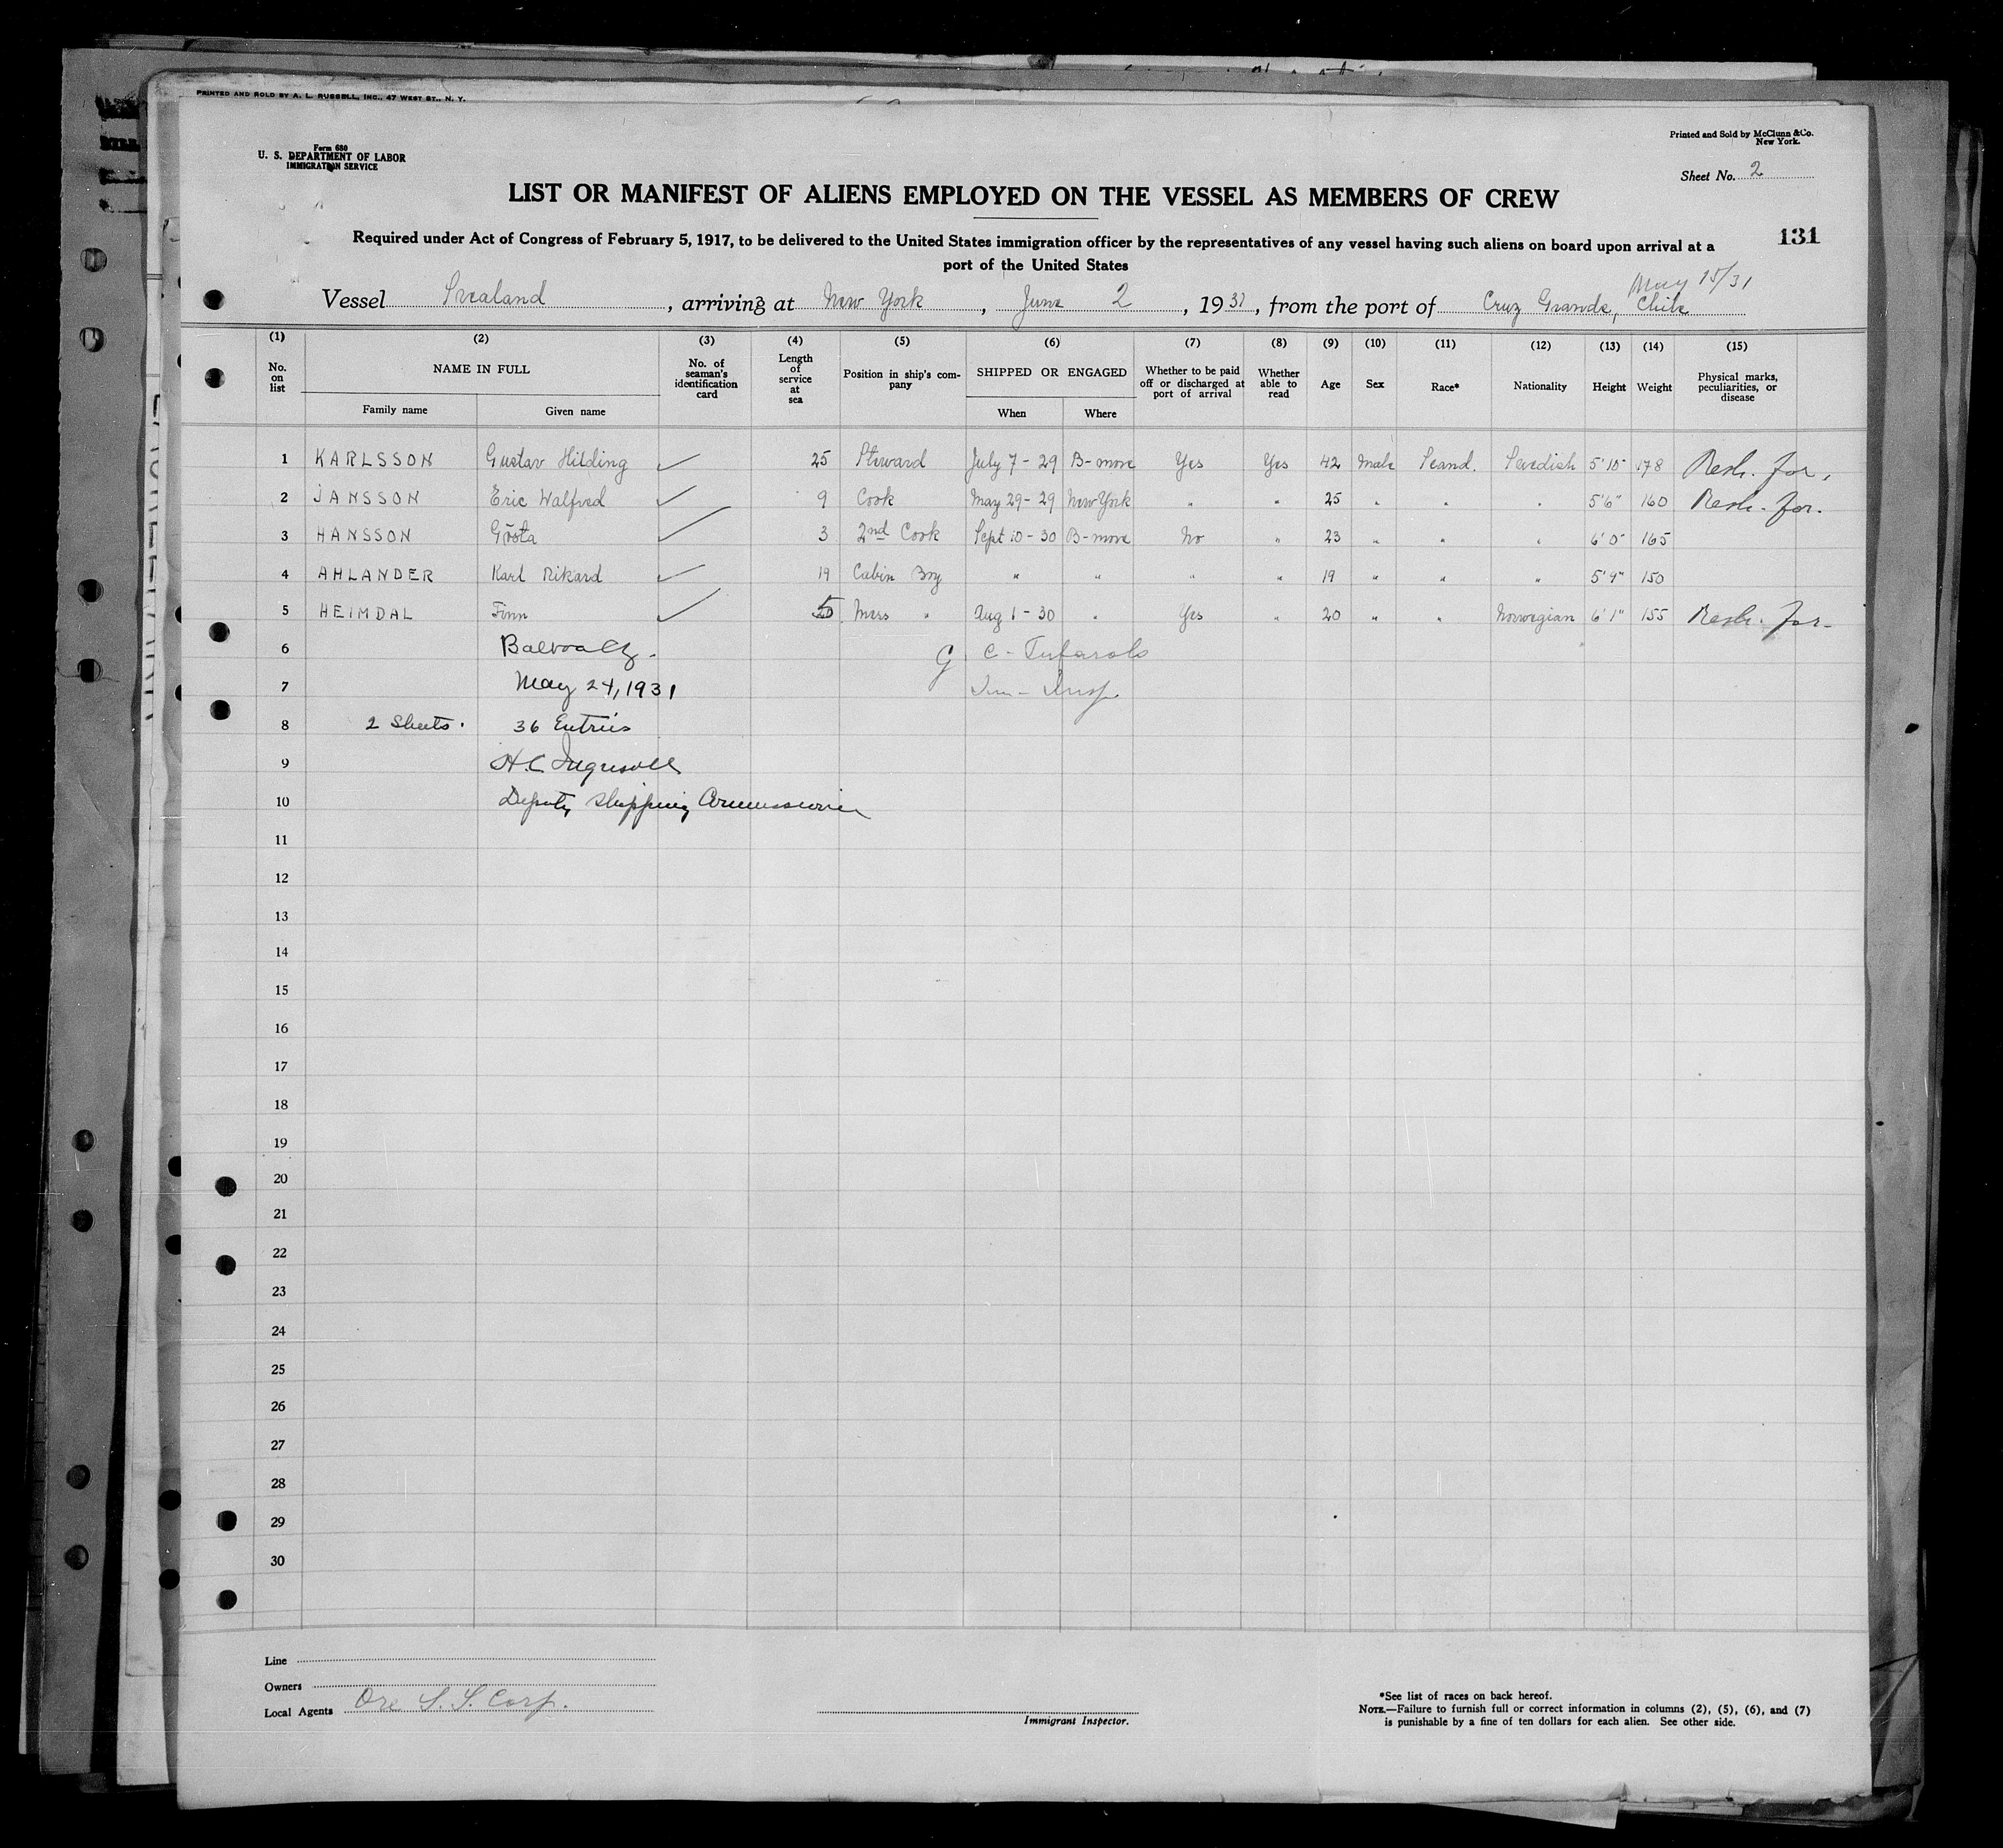 PRINTED AND SOLD BY A. L. RUSSELL, INC., 47 WEST ST., N. Y.
Printed and Sold by McClunn & Co.
New York.
Form 680
U. S. DEPARTMENT OF LABOR
IMMIGRATION SERVICE
Sheet No. 2
LIST OR MANIFEST OF ALIENS EMPLOYED ON THE VESSEL AS MEMBERS OF CREW
131
Required under Act of Congress of February 5, 1917, to be delivered to the United States immigration officer by the representatives of any vessel having such aliens on board upon arrival at a
port of the United States
May 15/31
Vessel Svealand, arriving at New York, June 2, 1931, from the port of Cruz Grande, Chile
(1) (2) (3) (4) (5) (6) (7) (8) (9) (10) (11) (12) (13) (14) (15)
No. on list NAME IN FULL Family name Given name No. of seaman's identification card Length of service at sea Position in ship's company SHIPPED OR ENGAGED When Where Whether to be paid off or discharged at port of arrival Whether able to read Age Sex Race* Nationality Height Weight Physical marks, peculiarities, or disease
1 KARLSSON Gustav Hilding ✓ 25 Steward July 7-29 B-more Yes Yes 42 Male Scand. Swedish 5'10" 178 Resh. for.
2 JANSSON Eric Walfred ✓ 9 Cook May 29-29 New York " " 25 " " " 5'6" 160 Resh. for.
3 HANSSON Gösta ✓ 3 2nd Cook Sept 10-30 B-more No " 23 " " " 6'0" 165
4 AHLANDER Karl Rikard ✓ 19 Cabin Boy " " " " 19 " " " 5'9" 150
5 HEIMDAL Finn ✓ 5 Mess " Aug 1-30 " Yes " 20 " " Norwegian 6'1" 155 Resh. for.
6 Balboa CZ. G C-
7 May 24, 1931 Im- Insp.
8 2 Sheets. 36 Entries
9 H.C. Ingersoll
10 Deputy Shipping Commissioner
11
12
13
14
15
16
17
18
19
20
21
22
23
24
25
26
27
28
29
30
Line
Owners
Local Agents Ore S. S. Corp.
Immigrant Inspector.
*See list of races on back hereof.
NOTE.—Failure to furnish full or correct information in columns (2), (5), (6), and (7)
is punishable by a fine of ten dollars for each alien. See other side.